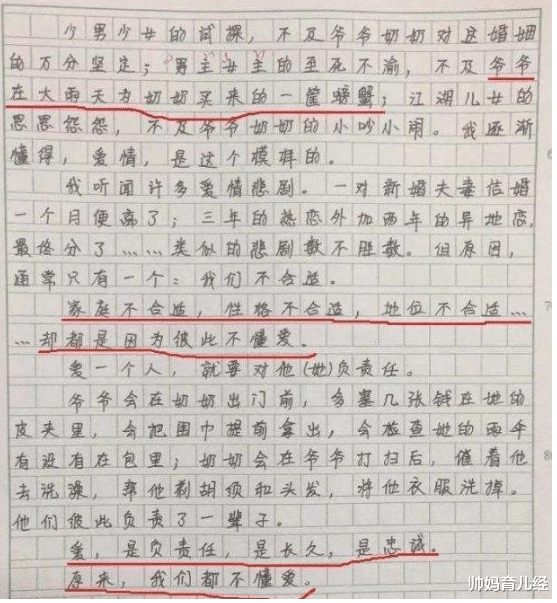 少男少女的试探，不及爷爷奶奶对这婚姻
的万分坚定；男主女主的至死不渝，不及爷爷
在大雨天为奶奶买来的一筐螃蟹；江湖儿女的
恩恩怨怨，不及爷爷奶奶的小吵小闹。我逐渐
懂得，爱情，是这个模样的。
我听闻许多爱情悲剧。一对新婚夫妻结婚
一个月便离了；三年的热恋外加两年的异地恋，
最终分了……类似的悲剧数不胜数。但原因，
通常只有一个：我们不合适。
家庭不合适，性格不合适，地位不合适…
…却都是因为彼此不懂爱。
爱一个人，就要对他(她)负责任。
爷爷会在奶奶出门前，多塞几张钱在她的
皮夹里，会把围巾提前拿出，会检查她的雨伞
有没有在包里；奶奶会在爷爷打扫后，催着他
去洗澡，帮他剃胡须和头发，将他衣服洗掉。
他们彼此负责了一辈子。
爱，是负责任，是长久，是忠诚。
原来，我们都不懂爱。
帅妈育儿经